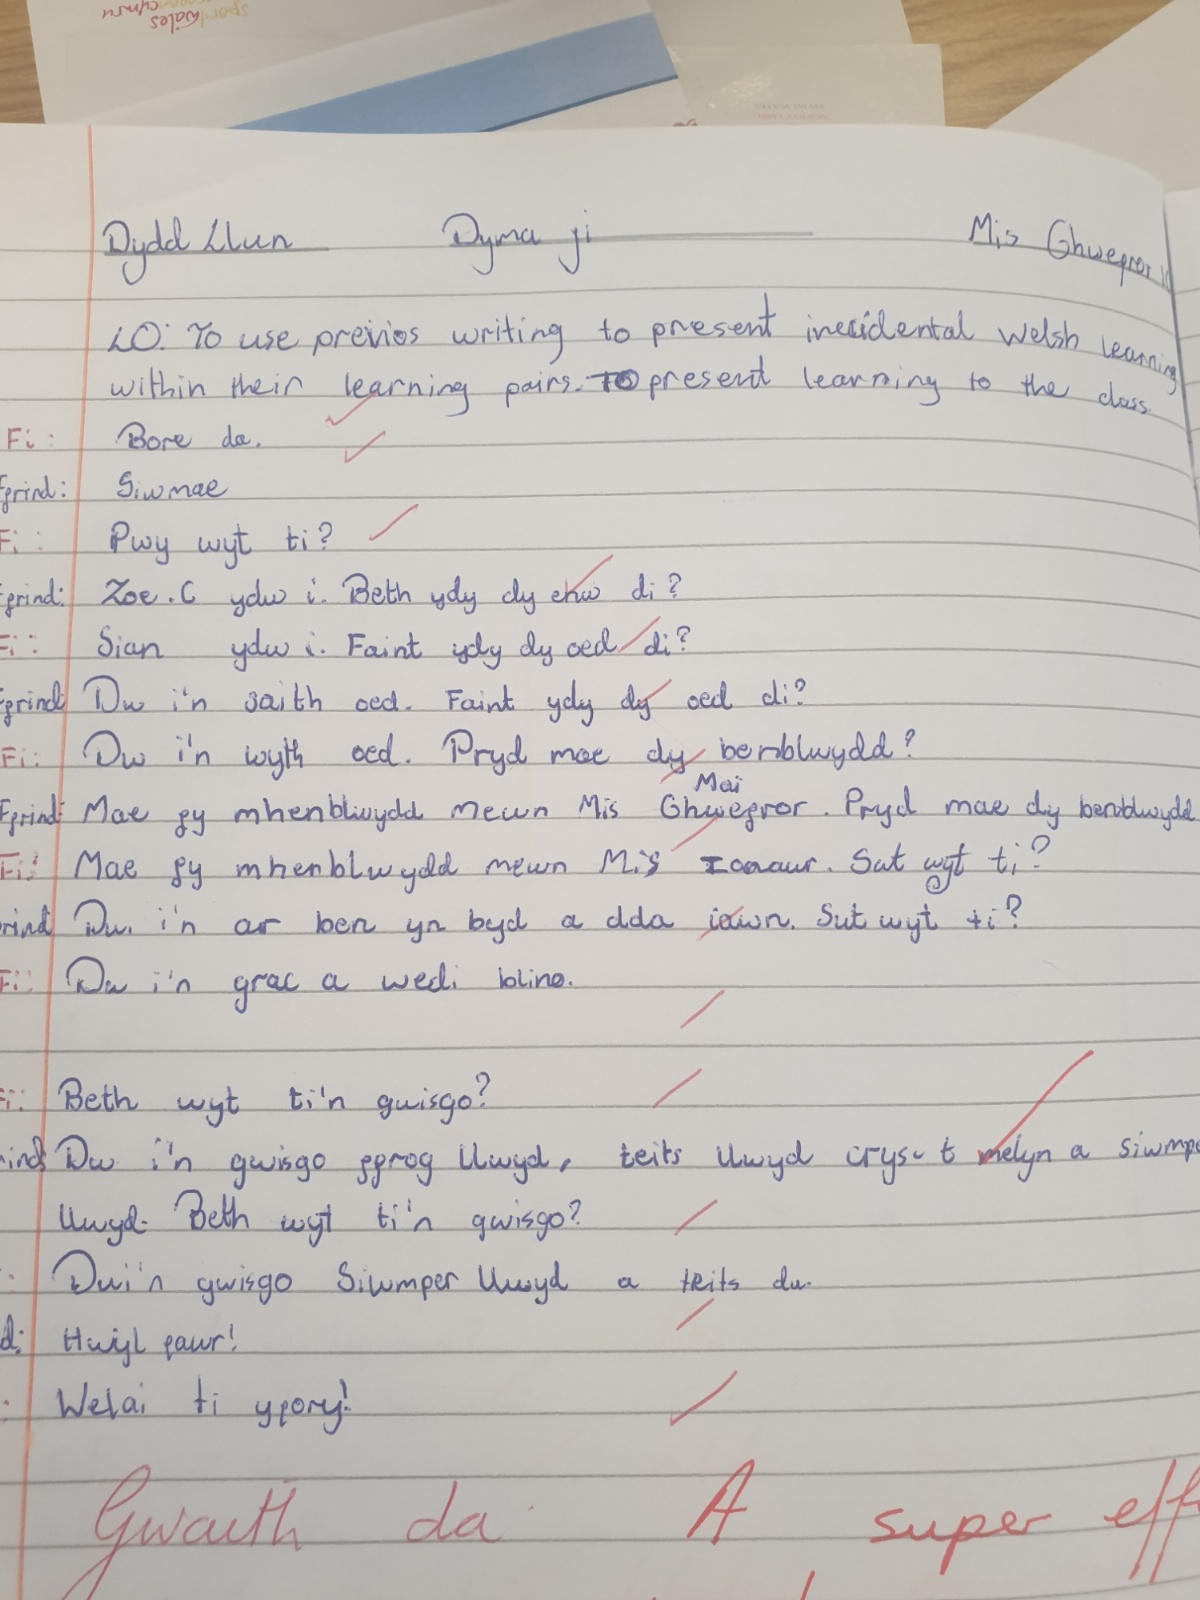 sport wales
cymru
Dydd Llun Dyma fi Mis Ghwefror
LO: To use previos writing to present inecidental Welsh learning
within their learning pairs. To present learning to the class.
Fi: Bore da.
Ffrind: Siwmae
Fi: Pwy wyt ti?
Ffrind: Zoe.C ydw i. Beth ydy dy enw di?
Fi: Sian ydw i. Faint ydy dy oed di?
Ffrind Dw i'n saith oed. Faint ydy dy oed di?
Fi: Dw i'n wyth oed. Pryd mae dy benblwydd?
Mai
Ffrind: Mae fy mhenblwydd mewn Mis Ghwefror. Pryd mae dy benblwydd
Fi: Mae fy mhenblwydd mewn Mis Ionaur. Sut wyt ti?
rind Dw i'n ar ben yn byd a dda iawn. Sut wyt ti?
Fi: Dw i'n grac a wedi blino.
Fi: Beth wyt ti'n gwisgo?
rind Dw i'n gwisgo ffrog llwyd, teits llwyd crys-t melyn a siwmpe
llwyd. Beth wyt ti'n gwisgo?
: Dwi'n gwisgo Siwmper llwyd a teits du.
d: Hwyl fawr!
: Welai ti yfory!
Gwaith da A super eff